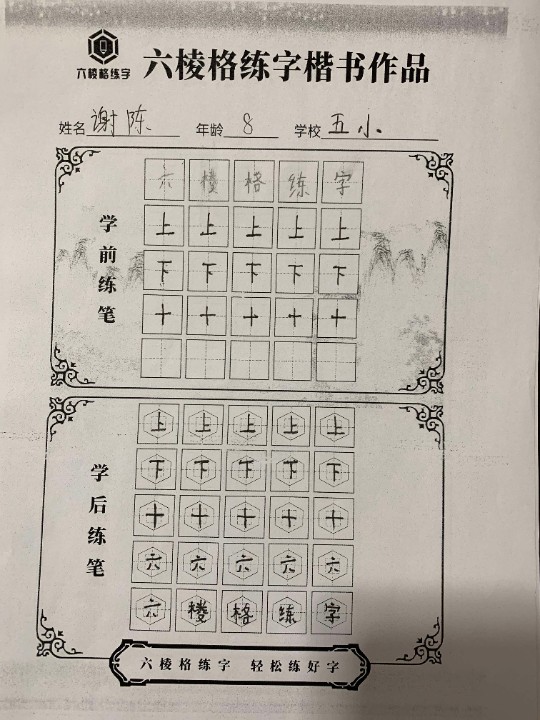 六棱格练字
六棱格练字楷书作品
姓名 谢陈 年龄 8 学校 五小
学前练笔
六 棱 格 练 字
上 上 上 上 上
下 下 下 下 下
十 十 十 十 十
学后练笔
上 上 上 上 上
下 下 下 下 下
十 十 十 十 十
六 六 六 六 六
六 棱 格 练 字
六棱格练字 轻松练好字